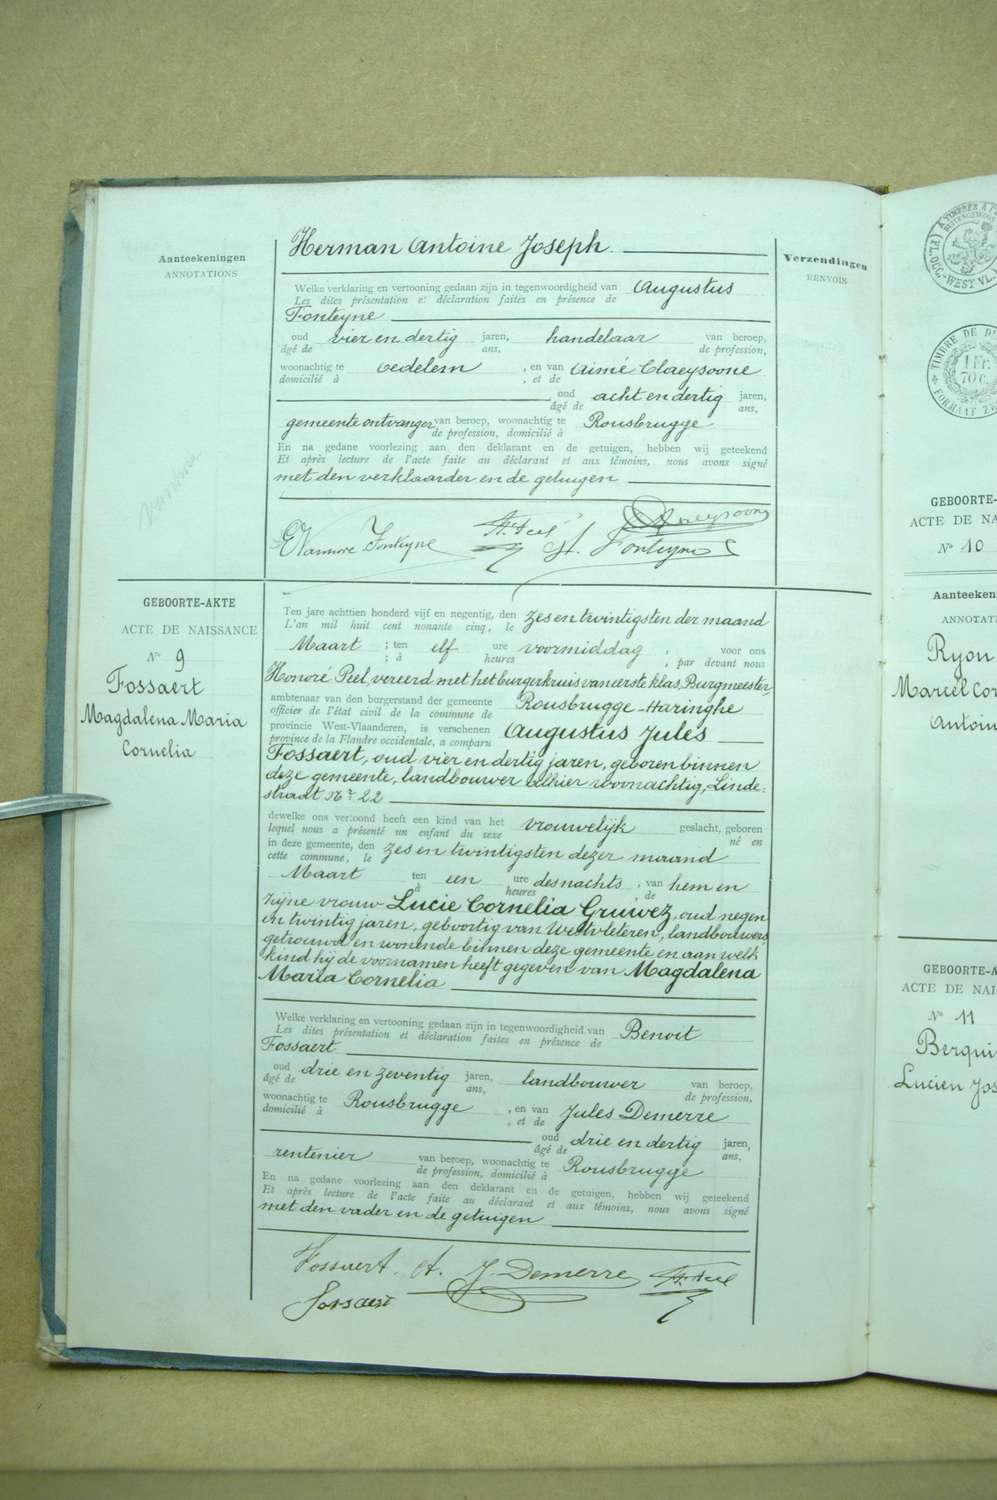 Aanteekeningen
ANNOTATIONS
Herman Antoine Joseph.
Verzendingen
RENVOIS
Welke verklaring en vertooning gedaan zijn in tegenwoordigheid van Augustus
Les dites présentation et déclaration faites en présence de
Fonteyne
oud vier en dertig jaren, handelaar van beroep,
âgé de ans, de profession,
woonachtig te Oedelem , en van Aimé Claeysoone
domicilié à , et de
oud acht en dertig jaren,
âgé de ans,
gemeente ontvanger van beroep, woonachtig te Rousbrugge
de profession, domicilié à
En na gedane voorlezing aan den deklarant en de getuigen, hebben wij geteekend
Et après lecture de l'acte faite au déclarant et aux témoins, nous avons signé
met den verklaarder en de getuigen
Fonteyne
A. Fonteyne
GEBOORTE-AKTE
ACTE DE NAISSANCE
N° 9
Fossaert
Magdalena Maria
Cornelia
Ten jare achttien honderd vijf en negentig, den zes en twintigsten der maand
L'an mil huit cent nonante cinq, le
Maart ; ten elf ure voormiddag , voor ons
; à heures , par devant nous
Honoré Peel, vereerd met het burgerkruis van eerste klas, Burgmeester
ambtenaar van den burgerstand der gemeente Rousbrugge-Haringhe
officier de l'état civil de la commune de
provincie West-Vlaanderen, is verschenen Augustus Jules
province de la Flandre occidentale, a comparu
Fossaert, oud vier en dertig jaren, geboren binnen
deze gemeente, landbouwer alhier woonachtig, Linde-
straat Nr 22
dewelke ons vertoond heeft een kind van het vrouwelijk geslacht, geboren
lequel nous a présenté un enfant du sexe né en
in deze gemeente, den zes en twintigsten dezer maand
cette commune, le
Maart ten een ure des nachts , van hem en
à heures , de
zijne vrouw Lucie Cornelia Gruwez, oud negen
en twintig jaren, geboortig van Westvleteren, landbouwers
getrouwd en wonende binnen deze gemeente en aan welk
kind hij de voornamen heeft gegeven van Magdalena
Maria Cornelia
Welke verklaring en vertooning gedaan zijn in tegenwoordigheid van Benoit
Les dites présentation et déclaration faites en présence de
Fossaert
oud drie en zeventig jaren, landbouwer van beroep,
âgé de ans, de profession,
woonachtig te Rousbrugge , en van Jules Demerre
domicilié à , et de
oud drie en dertig jaren,
âgé de ans,
rentenier van beroep, woonachtig te Rousbrugge
de profession, domicilié à
En na gedane voorlezing aan den deklarant en de getuigen, hebben wij geteekend
Et après lecture de l'acte faite au déclarant et aux témoins, nous avons signé
met den vader en de getuigen
Fossaert. A. J. Demerre H. Peel
Fossaert
TIMBRE DE
1 Fr.
70 C.
FORMAAT
GEBOORTE-
ACTE DE NA
N° 10
Aanteeken
ANNOTAT
Ryon
Marcel Cor
Antoin
GEBOORTE-A
ACTE DE NAI
N° 11
Berqui
Lucien Jos